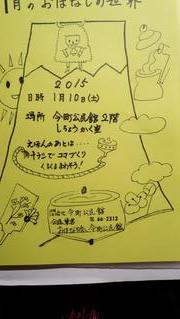 1月のおはなしの世界
2015
日時 1月10日(土)
場所 今町公民館2階
しちょうかく室
えほんのあとは・・・・
チラシで コマづくり
くるくるまわそう!
今町公民館
おはなし会 今町公民館